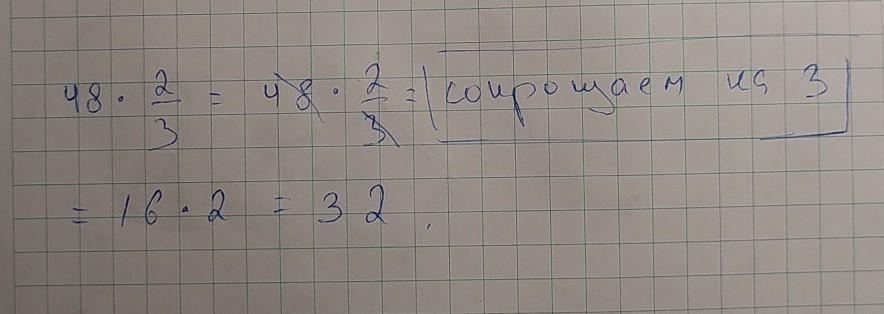 48 · 2/3 = 48 · 2/3 = сокращаем на 3
= 16 · 2 = 32.